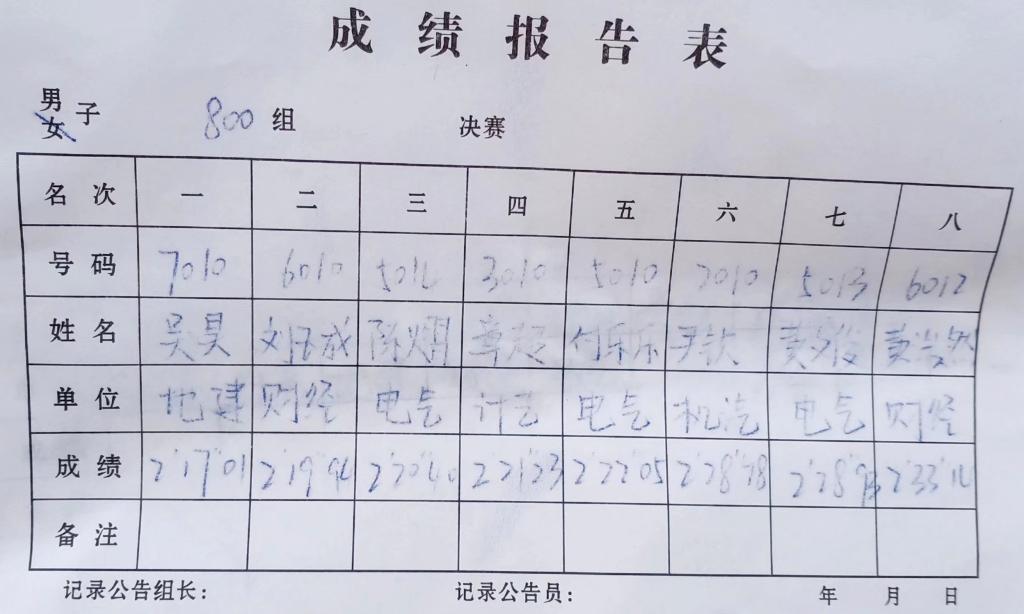 成绩报告表
男
女 子 800 组 决赛
名次 一 二 三 四 五 六 七 八
号码 7010 6010 5012 3010 5010 7010 5013 6012
姓名 吴昊 刘玉成 陈熠 章超 付乐乐 尹铁 黄俊
单位 地建 财经 电气 计艺 电气 机汽 电气 财经
成绩 2'17"01 2'19"94 2'20"40 2'21"23 2'22"05 2'28"78 2'28"93 2'33"12
备注
记录公告组长: 记录公告员: 年 月 日